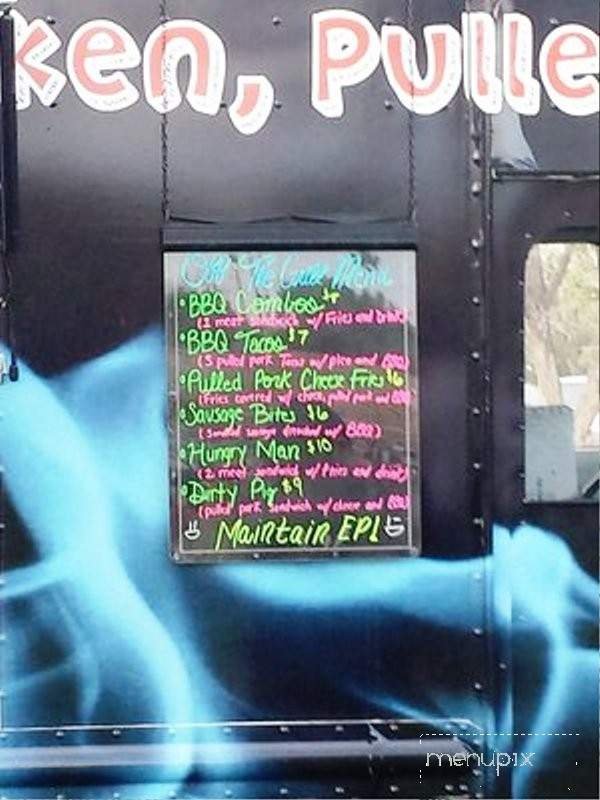 ken, Pulle
Off The Menu
• BBQ Combos $
(1 meat sandwich w/ Fries and Drink)
• BBQ Tacos $7
(3 pulled pork Tacos w/ pico and BBQ)
• Pulled Pork Cheese Fries $6
(Fries covered w/ cheese, pulled pork and BBQ)
• Sausage Bites $6
(Smoked sausage w/ BBQ)
• Hungry Man $10
(2 meat sandwich w/ fries and drink)
• Dirty Pig $9
(pulled pork sandwich w/ cheese and BBQ)
Maintain EPL
menupix